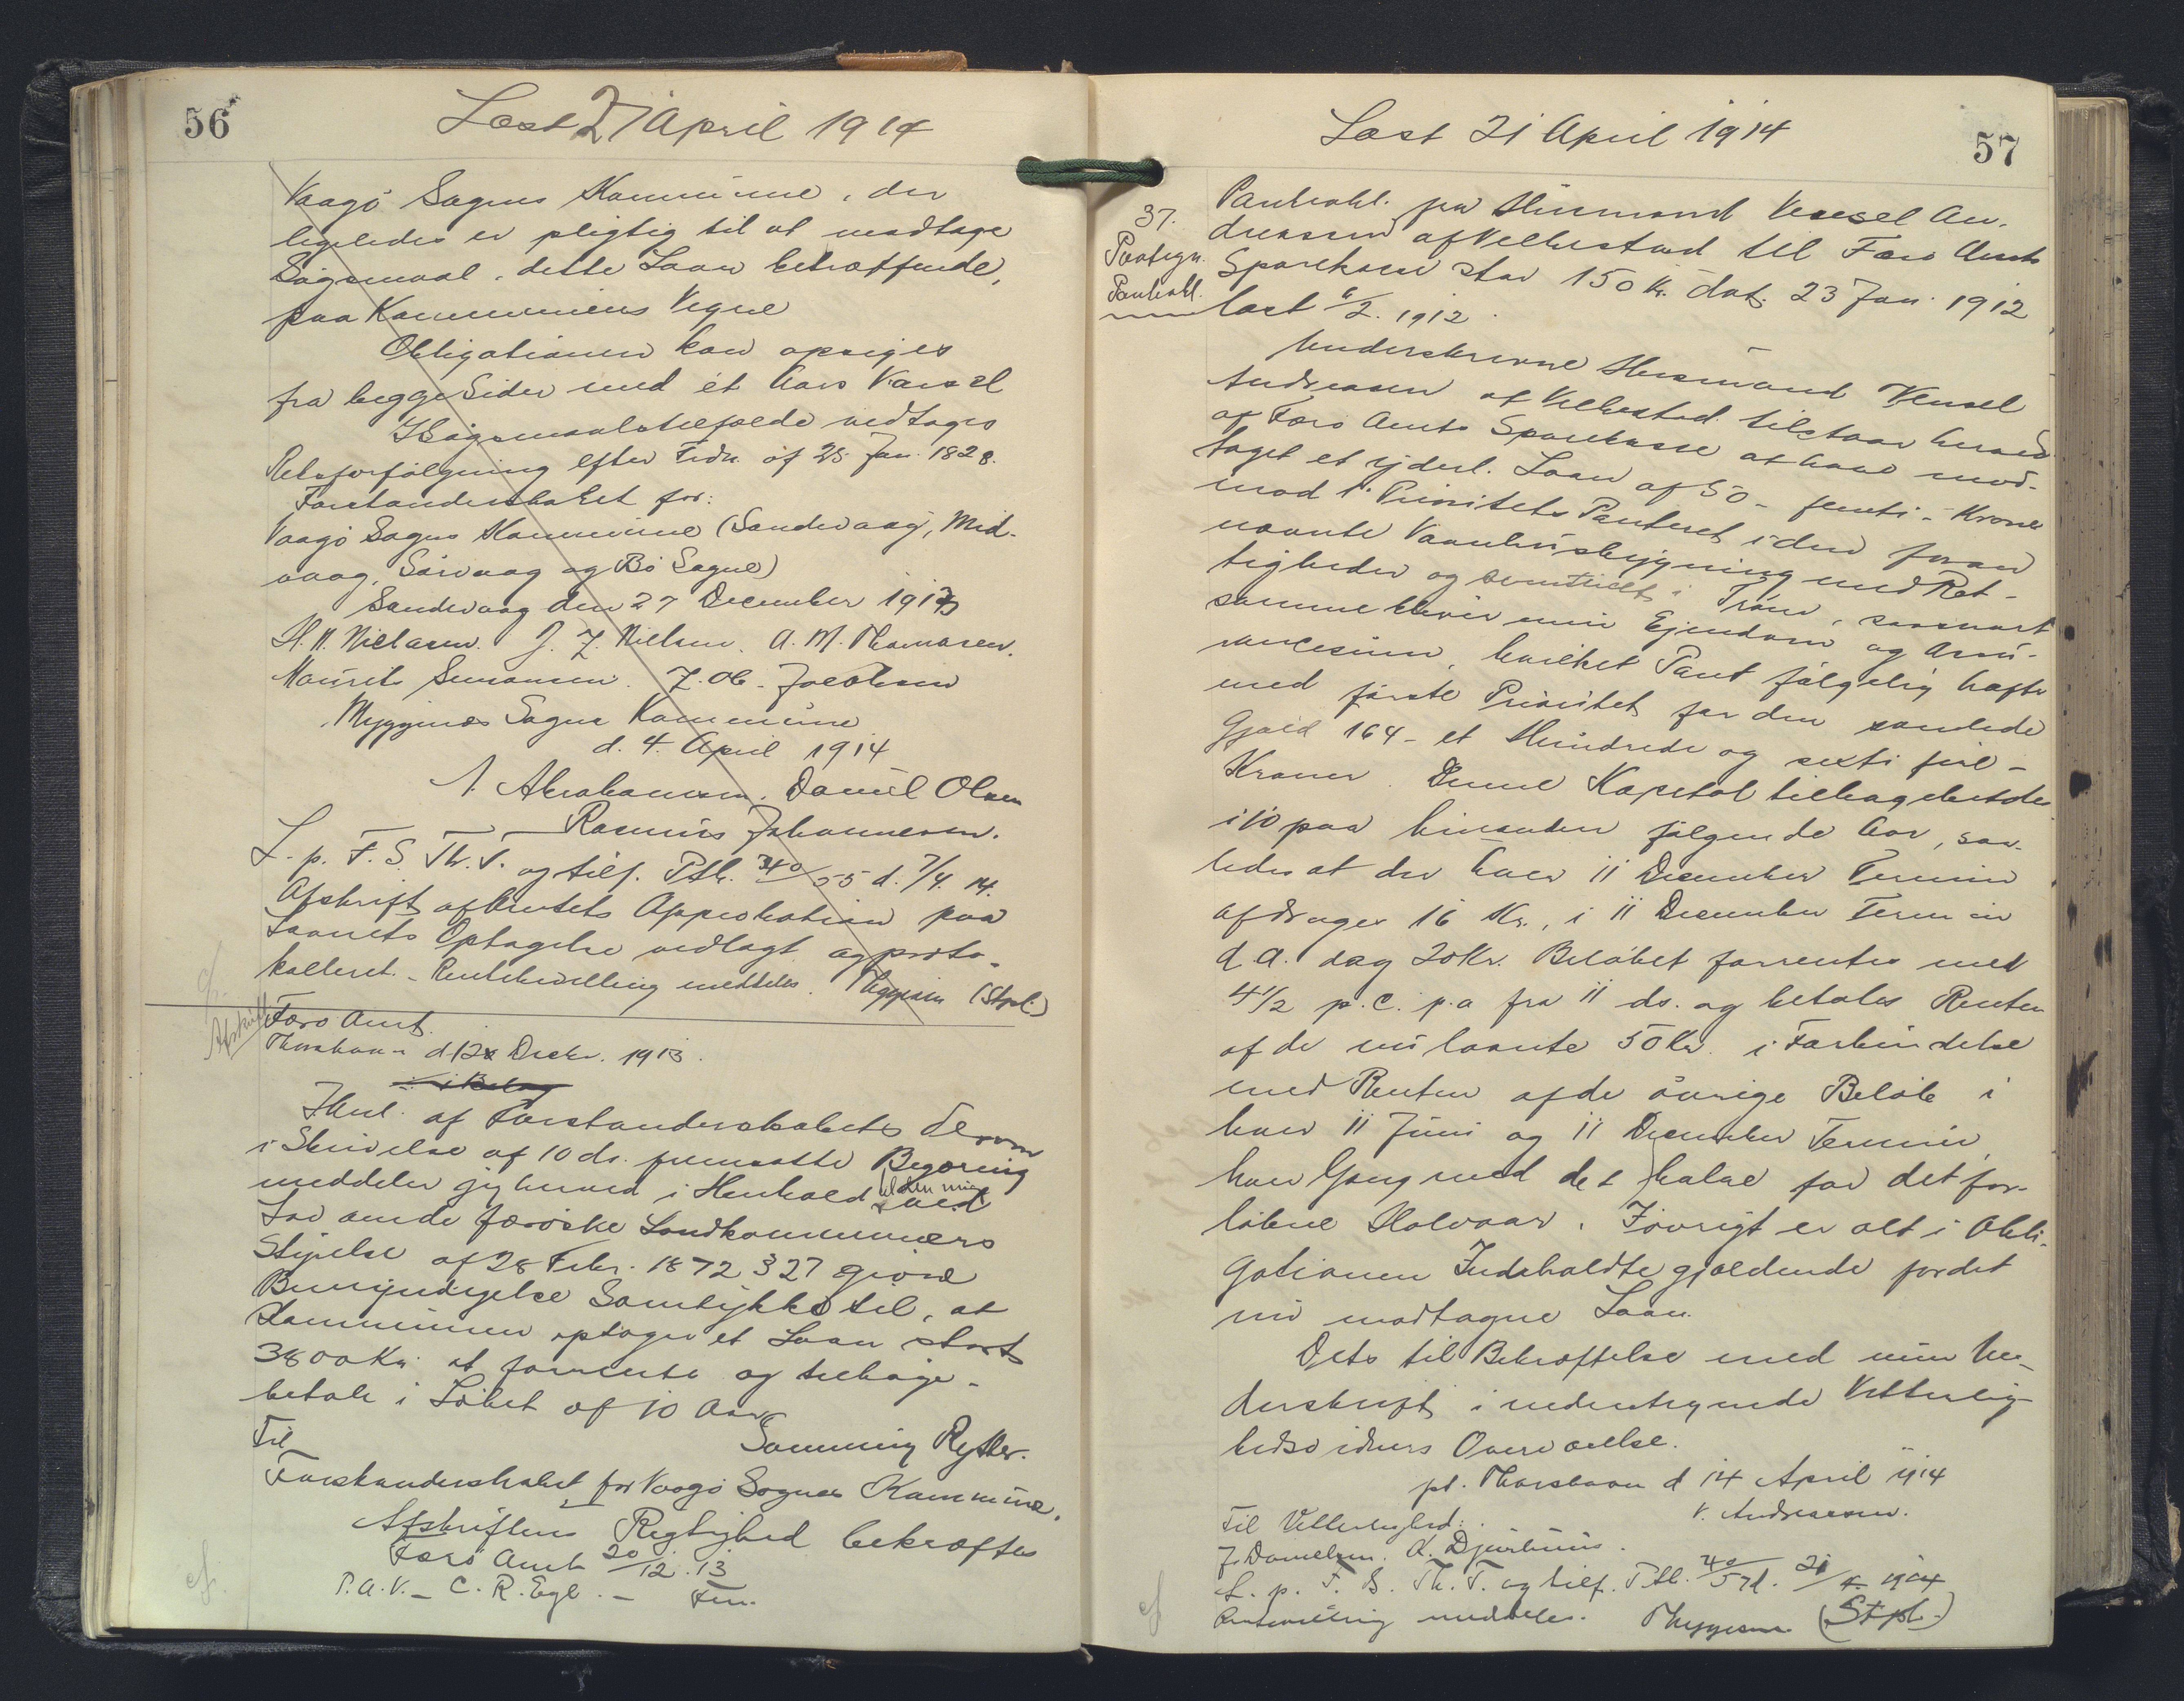 56
Læst 21 April 1914
Vaagø Sogns Kommune, der
ligeledes er pligtig til at modtage
Søgsmaal, dette Laan betræffende,
paa Kommunens Vegne
Obligationen kan opsiges
fra begge Sider med et Aars Varsel
I Søgsmaalstilfælde vedtages
Retsforfølgning efter Frdn. af 25. Jan. 1828.
Forstanderskabet for:
Vaagø Sogns Kommune (Sandevaag, Mid-
vaag, Sørvaag og Bø Sogne)
Sandevaag den 27 December 1913
H. N. Nielasen. J. J. Nielsen. A. M. Thomasen.
Maurits Simonsen. J. Ob. Jacobsen
Myggenæs Sogns Kommune
d. 4. April 1914
A. Abrahamsen. Daniel Olsen
Rasmus Johannesen.
L. p. F. S. Th. T. og tilf. Ptk. 340/55 d. 7/4. 14.
Afskrift af Amtets Approbation paa
Laanets Optagelse vedlagt og proto-
kolleret. - Rentebevilling meddeles. Thygesen (Stpl.)
Afskrift
Færø Amt.
Thorshavn d 12 Decbr. 1913.
I Hen. af Forstanderskabets derom
i Skrivelse af 10 ds. fremsatte Begæring
meddeler jeg herved i Henhold til den mig ved
Lov om de færøske Landkommuners
Styrelse af 28 Febr. 1872 § 27 givne
Bemyndigelse Samtykke til, at
Kommunen optager et Laan stort
3800 Kr. at forrente og tilbage-
betale i Løbet af 10 Aar
Til Sømming Rytter.
Forstanderskabet for Vaagø Sogns Kommune.
Afskriftens Rigtighed bekræftes
Færø Amt 20/12. 13
P. A. V. - C. R. Egl. - Fm.
57
Læst 21 April 1914
37.
Paategn.
Pantobl.
Pantobl. fra Husmand Vensel An-
dreassen af Velbestad til Færø Amts
Sparekasse stor 150 Kr. dat. 23 Jan. 1912
læst 6/2. 1912.
Underskrevne Husmand Vensel
Andreasen af Velbestad tilstaar herved
af Færø Amts Sparekasse at have mod-
taget et yderl. Laan af 50 - femti - Kroner
mod 1' Prioritets Panteret i den foran
nævnte Vaanhusbygning med Ret-
tigheder og eventuelt i Trøen, saasnart
samme bliver min Ejendom og Assu-
rancesum, hvilket Pant følgelig hæfter
med første Prioritet for den samlede
Gjæld 164 - et Hundrede og sexti fire -
Kroner. Denne Kapital tilbagebetales
i 10 paa hinanden følgende Aar, saa-
ledes at der hver 11 December Termin
afdrages 16 Kr., i 11 December Termin
d. A. dog 20 Kr. Beløbet forrentes med
4 1/2 p. C. p. a fra 11 ds. og betales Renten
af de nu laante 50 Kr. i Forbindelse
med Renten af de øvrige Beløb i
hver 11 Juni og 11 December Termin
hver Gang med det halve for det for-
løbne Halvaar. Iøvrigt er alt i Obli-
gationen Indeholdte gjældende for det
nu modtagne Laan.
Dets til Bekræftelse med min Un-
derskrift i undertegnede Vitterlig-
hedsvidners Overværelse.
pt. Thorshavn d 14 April 1914
V. Andreasen.
Til Vitterlighed:
J. Danielsen. A. Djurhuus.
L. p. F. S. Th. T. og tilf. Ptk. 40/57 d. 21/4 1914
Rentevilling meddeles. Thygesen (Stpl.)